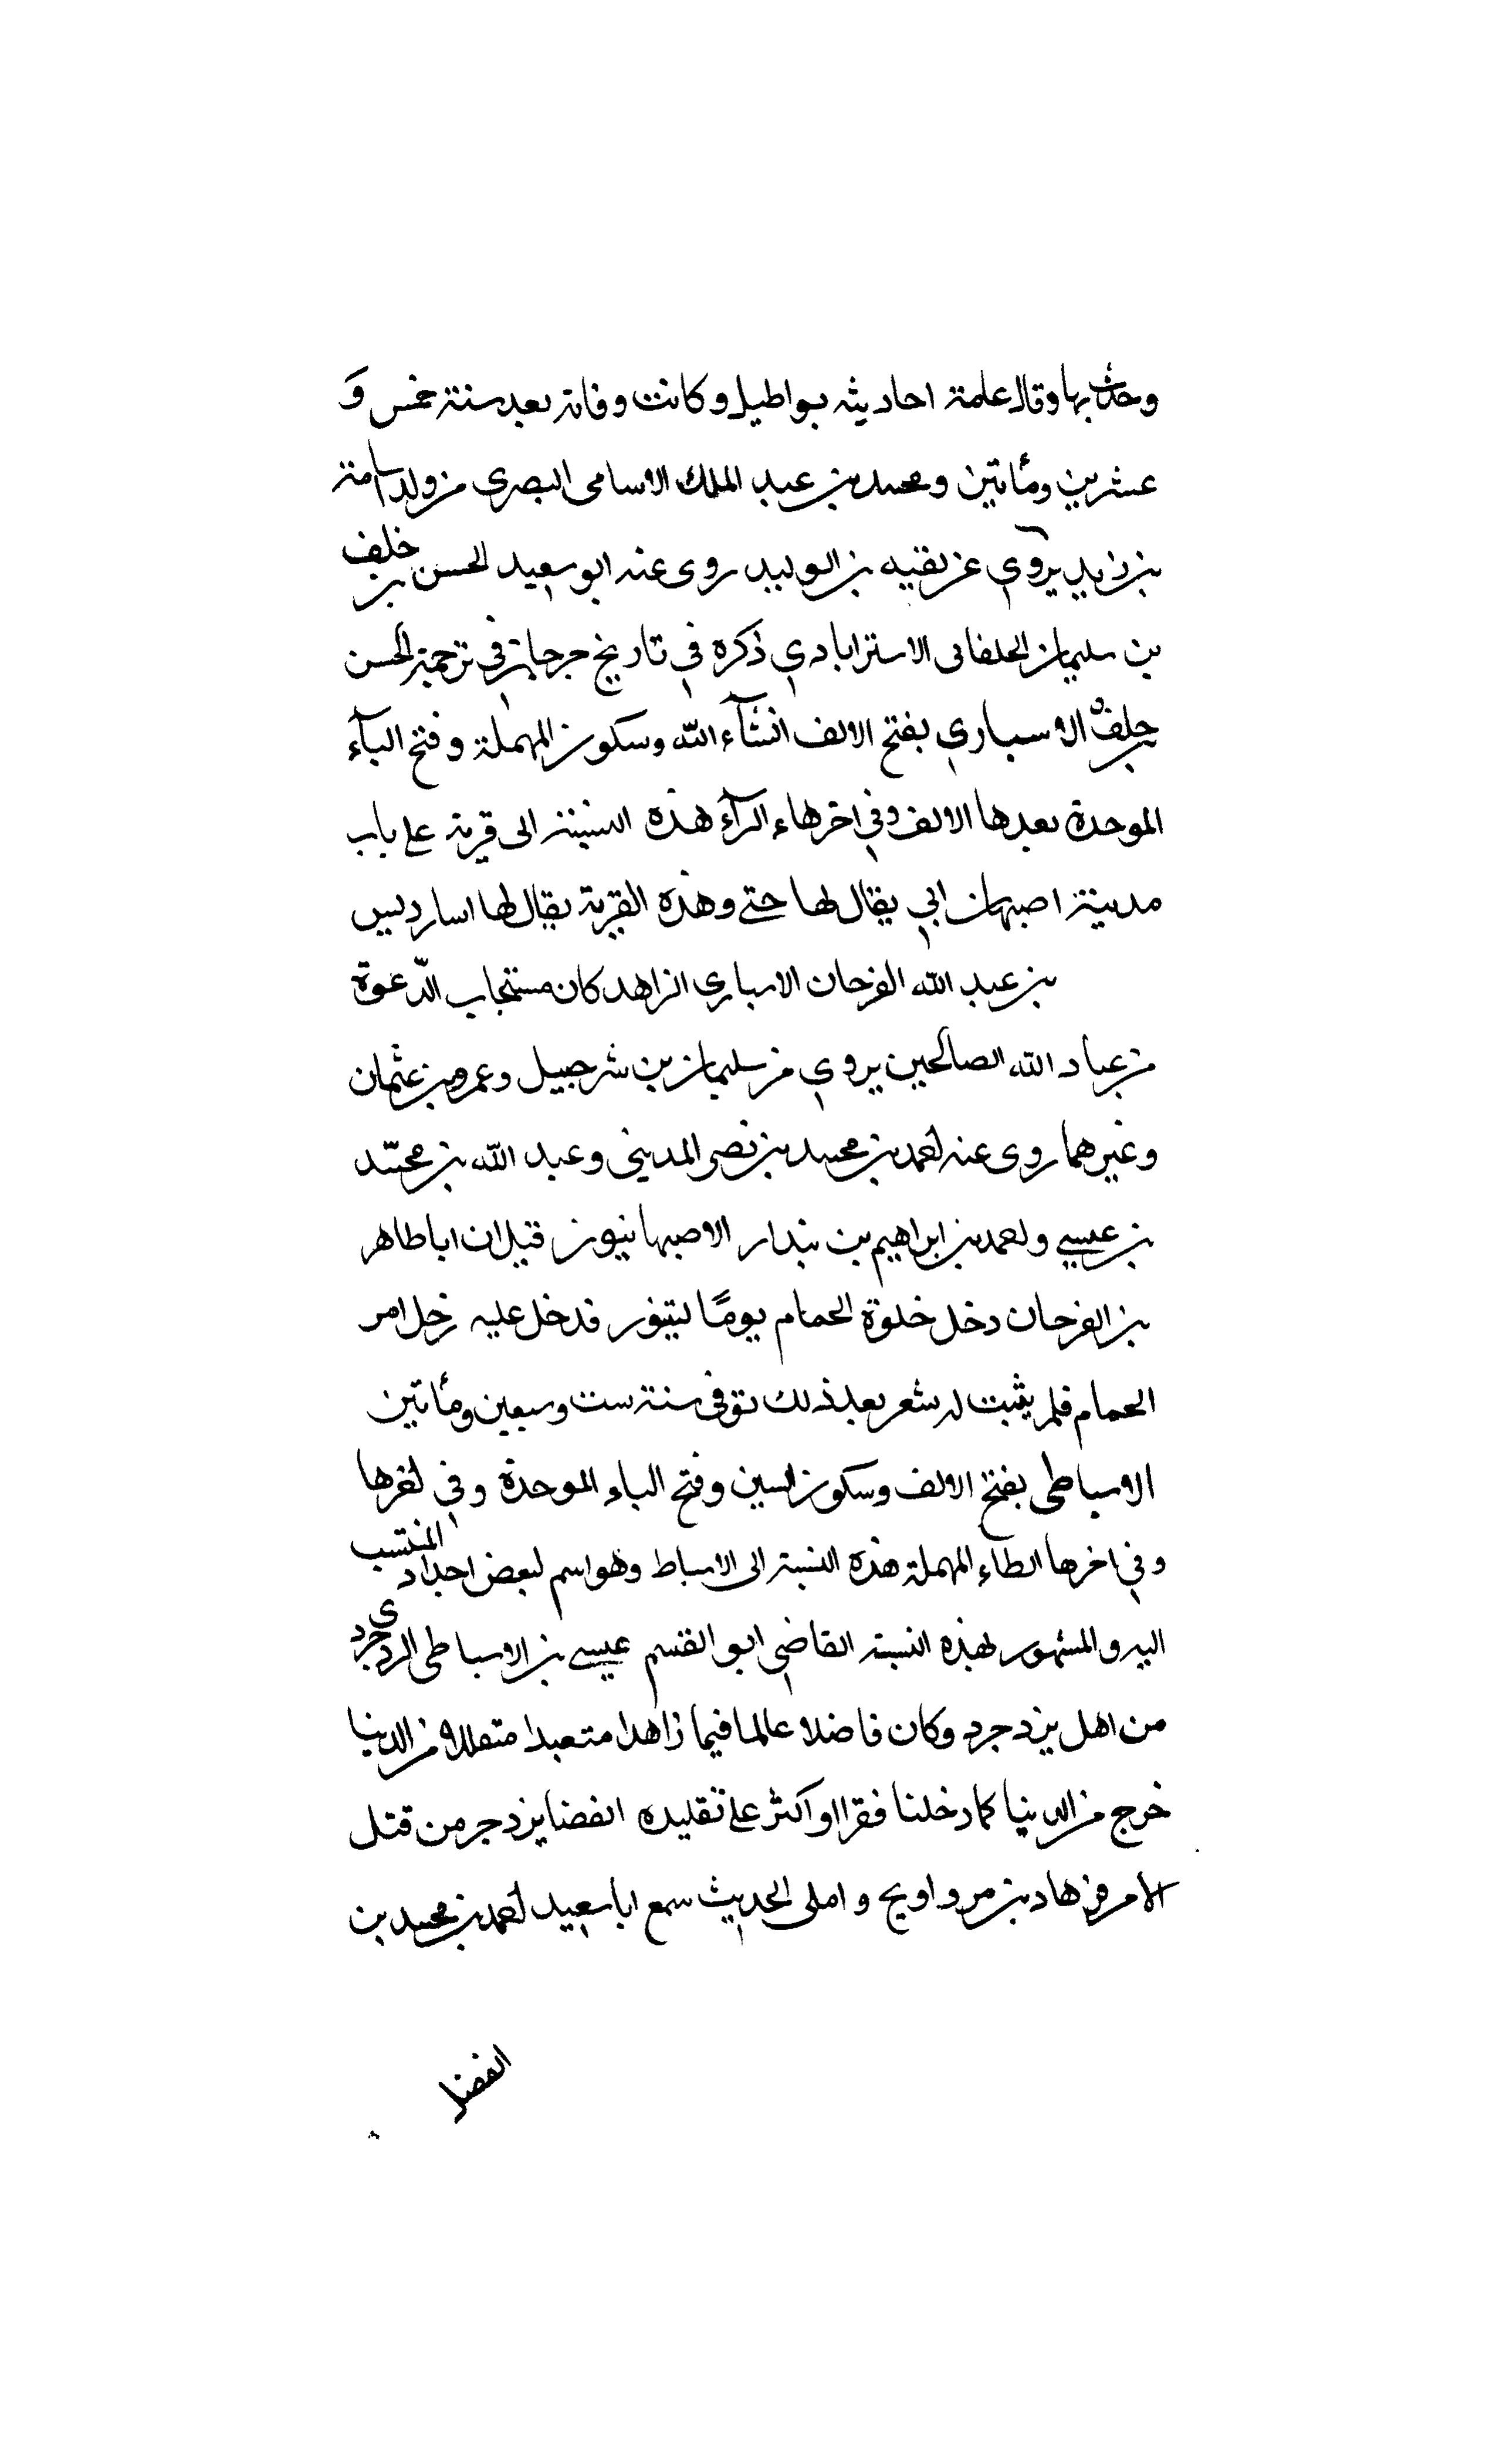 وحدث بها وقال عامة احاديثه بواطيل وكانت وفاته بعد سنة خمس و
عشرين ومأتين ومحمد بن عبد الملك الاسامى البصرى من ولد اسامة
بن زيد يروي عن بقيه بن الوليد روى عنه ابو سعيد الحسن بن خلف
بن سليمان الحلفانى الاسترابادي ذكره في تاريخ جرجان في ترجمة الحسن
بن خلف الاسباري بفتح الالف انشآء الله وسكون المهملة وفتح البآء
الموحدة بعدها الالف وفي اخرهاء الرآء هذه النسبة الى قرية على باب
مدينة اصبهان ابي يقال لها حتى وهذه القرية يقال لها اسارديس
بن عبد الله الفرحان الاسبارى الزاهد كان مستجاب الدّعوة
من عباد الله الصالحين يروي من سليمان بن شرحبيل وعمرو بن عثمان
وغيرهما روى عنه احمد بن محمد بن نصر المدينى وعبد الله بن محمّد
بن عيسى واحمد بن ابراهيم بن بندار الاصبهانيون قيل ان ابا طاهر
بن الفرحان دخل خلوة الحمام يومًا ليتنور فدخل عليه رجل امر
الحمام فلم يثبت له شعر بعد ذلك توفى سنة ست وسبعين ومأتين
الاسباطى بفتح الالف وسكون السين وفتح الباء الموحدة وفي اخرها
وفي اخرها الطاء المهملة هذه النسبة الى الاسباط وهو اسم لبعض اجداد المنتسب
اليه والمشهور لهذه النسبة القاضي ابو القسم عيسى بن الاسباطى
من اهل يزدجرد وكان فاضلا عالما فيما زاهدا متعبدا متقللا من الدنيا
خرج من الدنيا كما دخلنا فقرا او اكثر على تقليده الفضا يزدجر من قتل
الامر فرهاد بن مرواويح واملى الحديث سمع ابا سعيد احمد بن محمد بن
الفضل